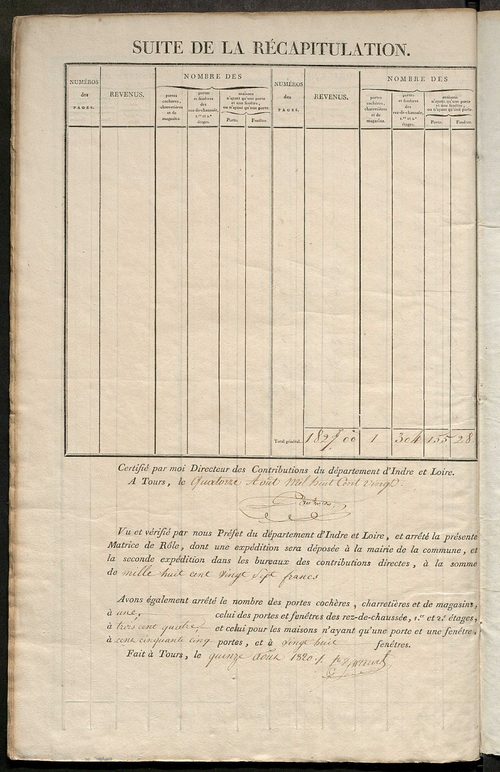 SUITE DE LA RÉCAPITULATION.
NUMÉROS des PAGES.
REVENUS.
NOMBRE DES
portes cochères, charretières et de magasins.
portes et fenêtres des rez-de-chaussée, 1.er et 2.e étages.
maisons n'ayant qu'une porte et une fenêtre, ou n'ayant qu'une porte.
Porte.
Fenêtre.
NUMÉROS des PAGES.
REVENUS.
NOMBRE DES
portes cochères, charretières et de magasins.
portes et fenêtres des rez-de-chaussée, 1.er et 2.e étages.
maisons n'ayant qu'une porte et une fenêtre, ou n'ayant qu'une porte.
Porte.
Fenêtre.
Total général. 1827 00 1 304 155 28
Certifié par moi Directeur des Contributions du département d'Indre et Loire.
A Tours, le Quatorze Août Mil huit Cent vingt.
Vu et vérifié par nous Préfet du département d'Indre et Loire, et arrêté la présente
Matrice de Rôle, dont une expédition sera déposée à la mairie de la commune, et
la seconde expédition dans les bureaux des contributions directes, à la somme
de mille huit cent vingt sept francs
Avons également arrêté le nombre des portes cochères, charretières et de magasins,
à une, celui des portes et fenêtres des rez-de-chaussée, 1.er et 2.e étages,
à trois cent quatre, et celui pour les maisons n'ayant qu'une porte et une fenêtre,
à cent cinquante cinq portes, et à vingt huit fenêtres.
Fait à Tours, le quinze Août 1820.